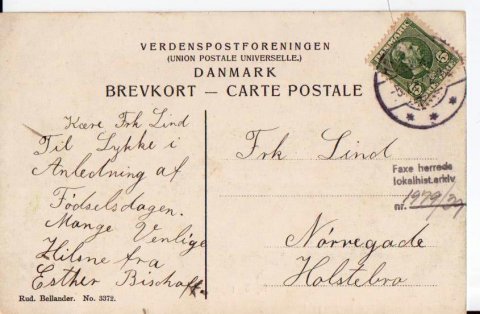 VERDENSPOSTFORENINGEN
(UNION POSTALE UNIVERSELLE.)
DANMARK
BREVKORT — CARTE POSTALE
Kære Frk Lind
Til Lykke i
Anledning af
Fødselsdagen.
Mange Venlige
Hilsne fra
Esther Bischoff.
Frk Lind
Nørregade
Holstebro
DANMARK
5
Faxe herreds
lokalhist.arkiv
nr. 1979/27
Rud. Bellander. No. 3372.